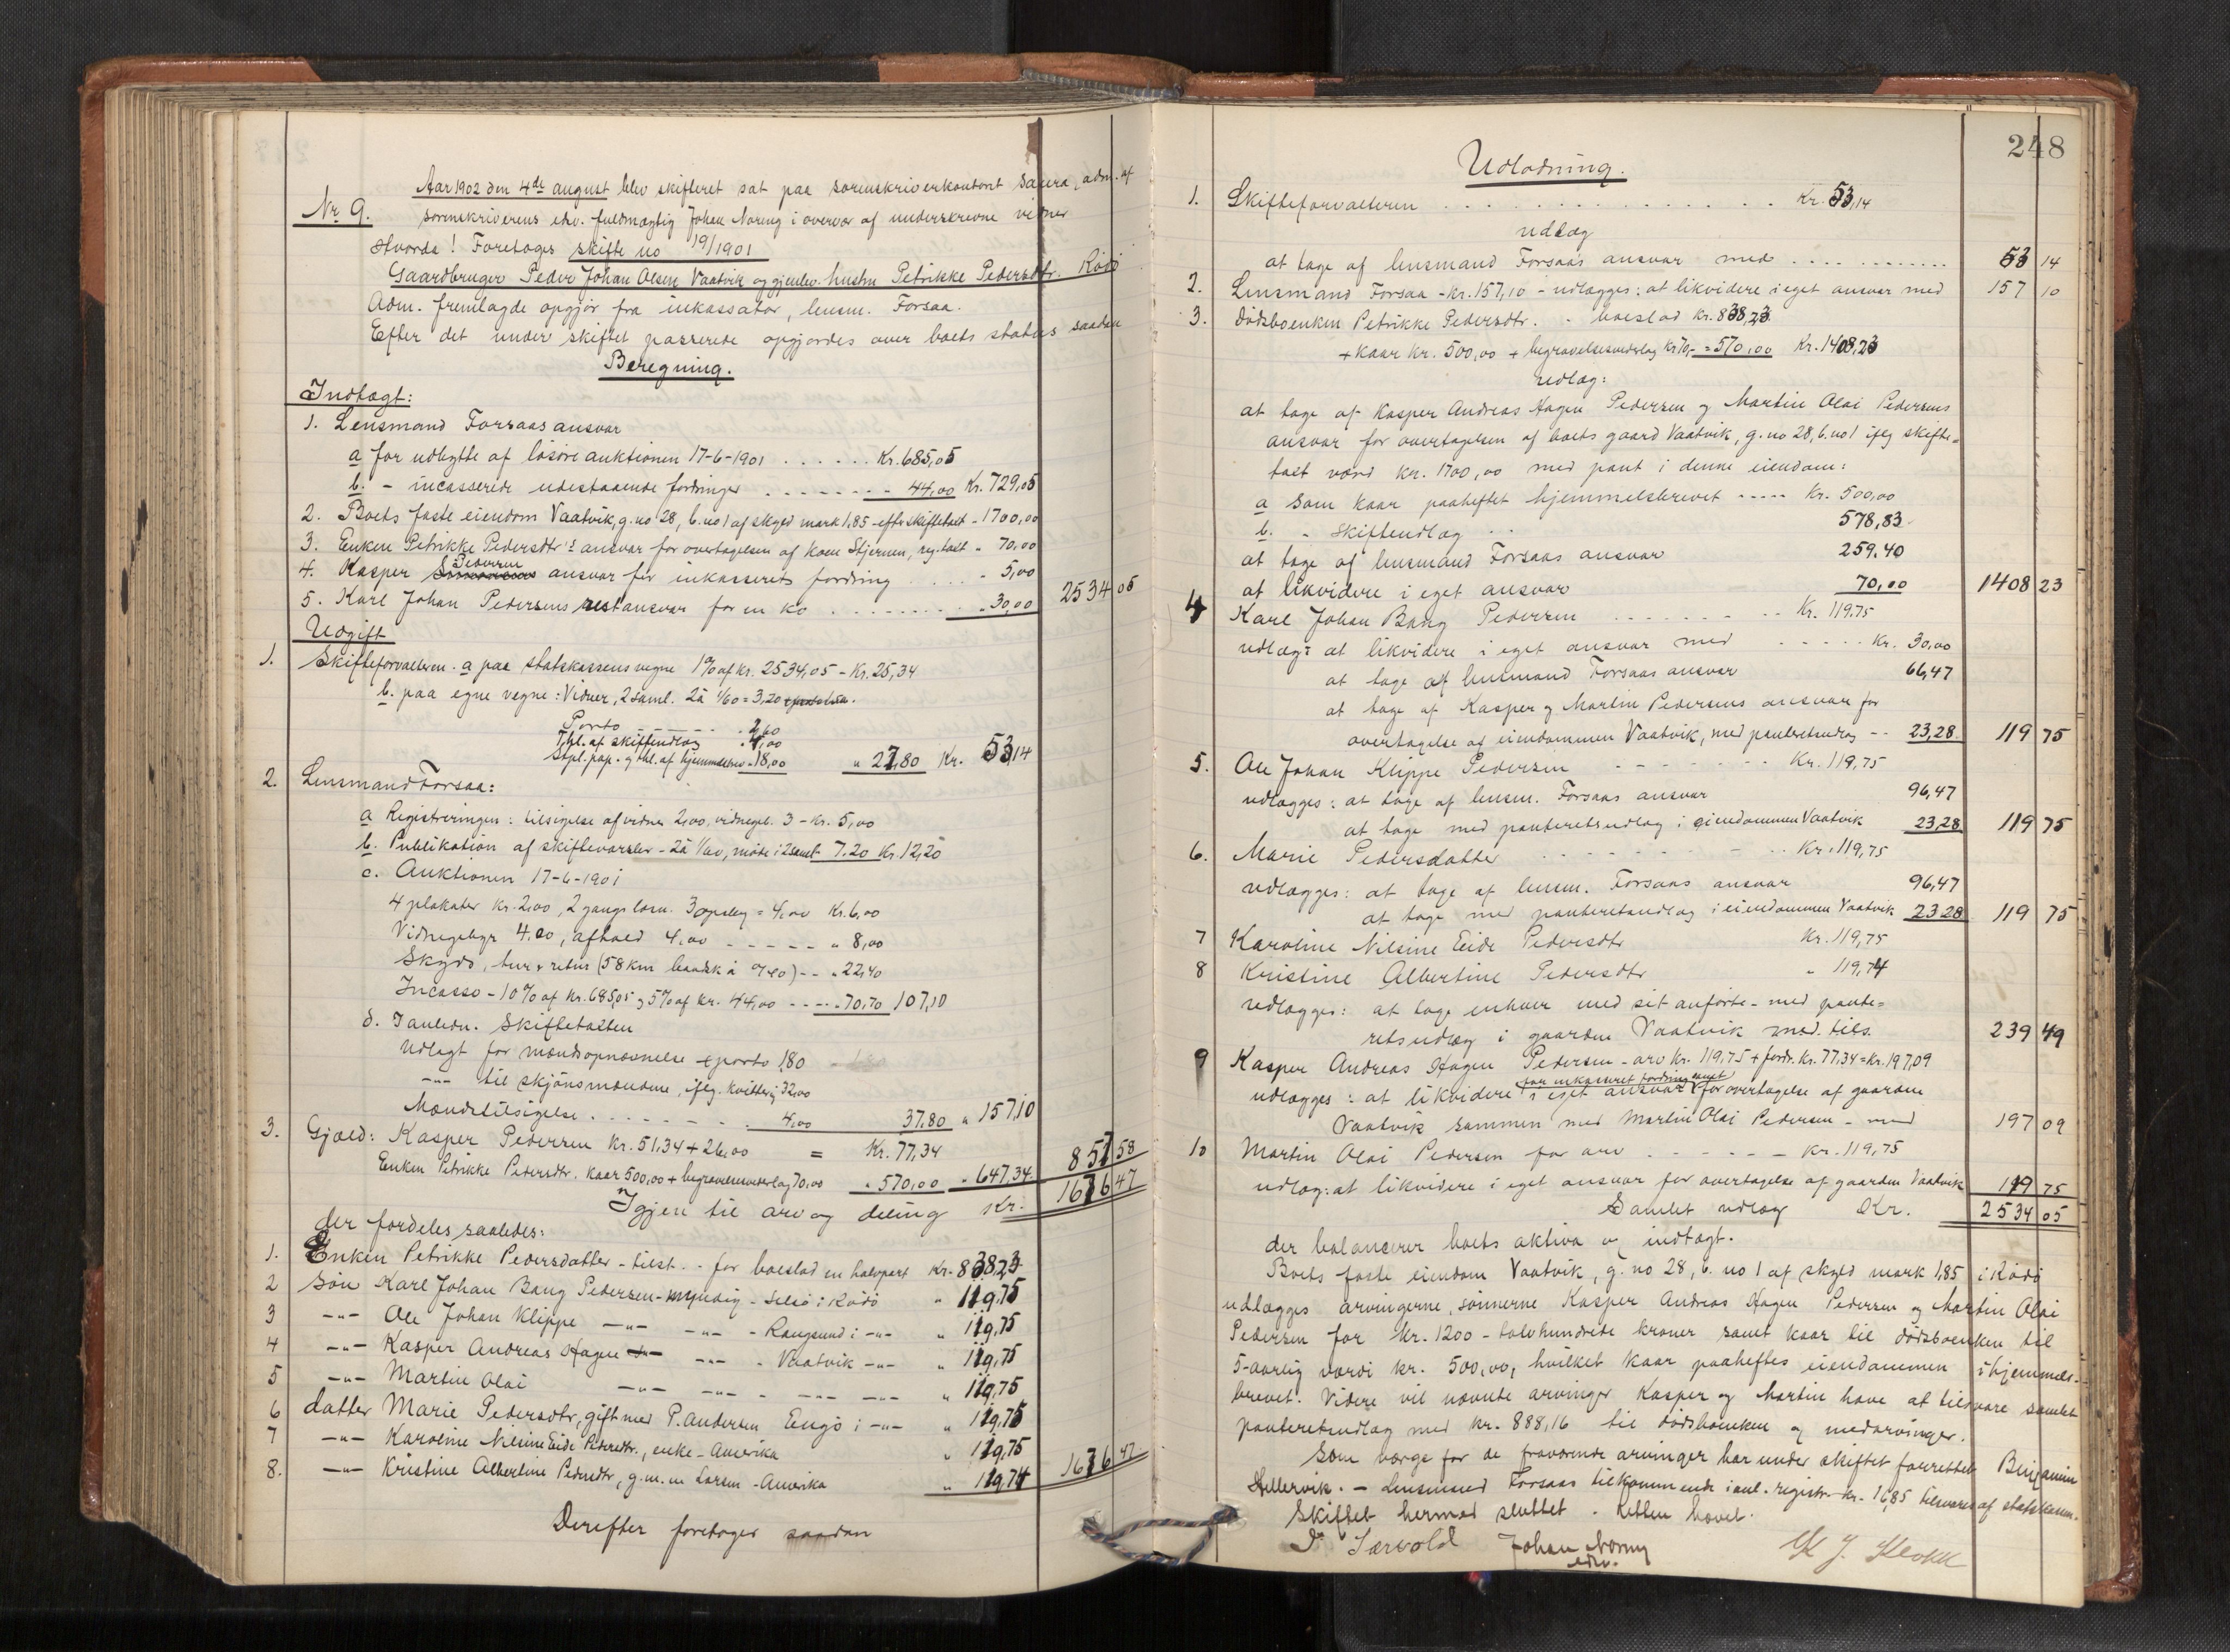 Aar 1902 den 4de august blev skifteret sat paa sorenskriverkontoret Saura, adm. af
Nr. 9. sorenskriverens edsv. fuldmægtig Johan Noring i overvær af underskrevne vidner
Hvorda! Foretoges skifte no 19/1901
Gaardbruger Peder Johan Olsen Vaatvik og gjenlev. hustru Petrikke Pedersdtr. Rødø
Adm. fremlagde opgjør fra inkassator, lensm. Forsaa.
Efter det under skiftet passerede opgjordes over boets status saadan
Beregning.
Indtægt:
1. Lensmand Forsaas ansvar
a for udbytte af løsøreauktionen 17-6-1901 ...... Kr. 685,05
b. - incasserede udestaaende fordringer ........ 44,00 Kr. 729,05
2. Boets faste eiendom Vaatvik, g. no 28, b. no 1 af skyld mark 1,85 - efter skiftetaxt - 1700,00
3. Enken Petrikke Pedersdtr's ansvar for overtagelsen af koen Stjernen, reg. taxt " 70,00
4. Kasper Pedersen ansvar for inkasserets fordring .... - 5,00
5. Karl Johan Pedersens restansvar for en ko ......... " 30,00 2534 05
Udgift
1. Skifteforvalteren. a paa statskassens vegne 1% af kr. 2534,05 - Kr. 25,34
b. paa egne vegne: Vidner, 2 saml. 2 à 1/60 = 3,20
Porto ...... 2,60
Thl. af skifteudlæg " 4,00
Stpl. pap. og thl. af hjemmelsbrev " 18,00 " 27,80 Kr. 53,14
2. Lensmand Forsaa:
a Registreringen: tilsigelse af vidner 2,00, vidnegeb. 3 - Kr. 5,00
b. Publikation af skiftevarsler - 2 à 1/00, møde i 2 samt 7.20 Kr. 12,20
c. Auktionen 17-6-1901
4 plakater kr. 2,00, 2 gangs læsn. 3 opslag = 4,00 Kr. 6,00
Vidnegebyr 4.00, afhold 4,00 ----- " 8,00
Skyds, tur & retur (58 km baadsk à 0/40) -- " 22,40
Incasso - 10% af Kr. 685,05 og 5% af kr. 44,00 ---- 70,70 107,10
d. I anledn. Skiftetaxten
Udlagt for mændsopnævnelse & porto 1,80
-"- til skjønsmændene, iflg. kvittering 32,00
Mændstilsigelse ....... 4,00 37,80 " 157,10
3. Gjæld: Kasper Pedersen kr. 51,34 + 26,00 = Kr. 77,34
Enken Petrikke Pedersdtr. kaar 500,00 + begravelsesvederlag 70,00 " 570,00 " 647,34 857 58
Igjen til arv og deling Kr. 1676 47
der fordeles saaledes:
1. Enken Petrikke Pedersdatter - tilst. - for boeslod en halvpart Kr. 838,23
2 Søn Karl Johan Bang Pedersen - myndig - Selsø i Rødø " 119,75
3 -"- Ole Johan Klippe -"- -"- - Rangsund i -"- " 119,75
4 -"- Kasper Andreas Hagen -"- -"- - Vaatvik -"- " 119,75
5 -"- Martin Olai -"- -"- - -"- -"- " 119,75
6 datter Marie Pedersdtr, gift med P. Andersen Engø i -"- " 119,75
7 -"- Karoline Nilsine Eide Pedersdtr., enke - Amerika " 119,75
8. -"- Kristine Albertine Pedersdtr, g. m. m Larsen - Amerika " 119,74 1676 47
Derefter foretoges saadan
248
Udlodning.
1. Skifteforvalteren .............. Kr. 53,14
udlæg
at tage af lensmand Forsaas ansvar med ............ 53 14
2. Lensmand Forsaa - Kr. 157,10 - udlægges: at likvidere i eget ansvar med 157 10
3. Dødsboenken Petrikke Pedersdtr. - boeslod kr. 838,23
+ kaar kr. 500,00 + begravelsesvederlag kr. 70,- = 570,00 Kr. 1408,23
udlæg:
at tage af Kasper Andreas Hagen Pedersen og Martin Olai Pedersens
ansvar for overtagelsen af boets gaard Vaatvik, g. no 28, b. no 1 iflg skifte-
taxt værd kr. 1700,00 med pant i denne eiendom:
a som kaar paaheftet hjemmelsbrevet ----- Kr. 500,00
b. - skifteudlæg .. 578,83
at tage af lensmand Forsaas ansvar 259.40
at likvidere i eget ansvar 70,00 1408 23
4 Karl Johan Bang Pedersen ......... Kr. 119.75
udlæg: at likvidere i eget ansvar med ..... kr. 30,00
at tage af lensmand Forsaas ansvar 66,47
at tage af Kasper og Martin Pedersens ansvar for
overtagelse af eiendommen Vaatvik, med panteretsudlæg -- 23,28 119 75
5. Ole Johan Klippe Pedersen ....... Kr. 119,75
udlægges: at tage af lensm. Forsaas ansvar 96,47
at tage med panteretsudlæg i eiendommen Vaatvik 23,28 119 75
6. Marie Pedersdatter ........ Kr. 119,75
udlægges: at tage af lensm. Forsaas ansvar 96,47
at tage med panteretsudlæg i eiendommen Vaatvik 23 28 119 75
7 Karoline Nilsine Eide Pedersdtr Kr. 119,75
8 Kristine Albertine Pedersdtr " 119,74
udlægges: at tage enhver med sit anførte - med pante-
retsudlæg i gaarden Vaatvik med tils. 239 49
9 Kasper Andreas Hagen Pedersen - arv kr. 119,75 + fordr. kr. 77,34 = Kr. 197,09
for inkasseret fordring samt
udlægges: at likvidere i eget ansvar for overtagelse af gaarden
Vaatvik sammen med Martin Olai Pedersen - med 197 09
10 Martin Olai Pedersen for arv ------ Kr. 119,75
udlæg: at likvidere i eget ansvar for overtagelse af gaarden Vaatvik 119 75
Samlet udlæg Kr. 2534 05
der balancerer boets aktiva og indtægt.
Boets faste eiendom Vaatvik, g. no 28, b. no 1 af skyld mark 1,85 i Rødø
udlægges arvingerne, sønnerne Kasper Andreas Hagen Pedersen og Martin Olai
Pedersen for kr. 1200 - tolvhundrede kroner samt kaar til dødsboenken til
5-aarlig værdi kr. 500,00, hvilket kaar paaheftes eiendommen i hjemmels-
brevet. Videre vil nævnte arvinger Kasper og Martin have at tilsvare samlet
panteretsudlæg med kr. 888,16 til dødsboenken og medarvinger.
Som værge for de fraværende arvinger har under skiftet forrettet Benjamin
Hellervik. - Lensmand Forsaas tilkommende i anl. registr. kr. 16,85 tilsvares af statskassen.
Skiftet hermed sluttet. Retten hævet.
Johan Noring
edsv.